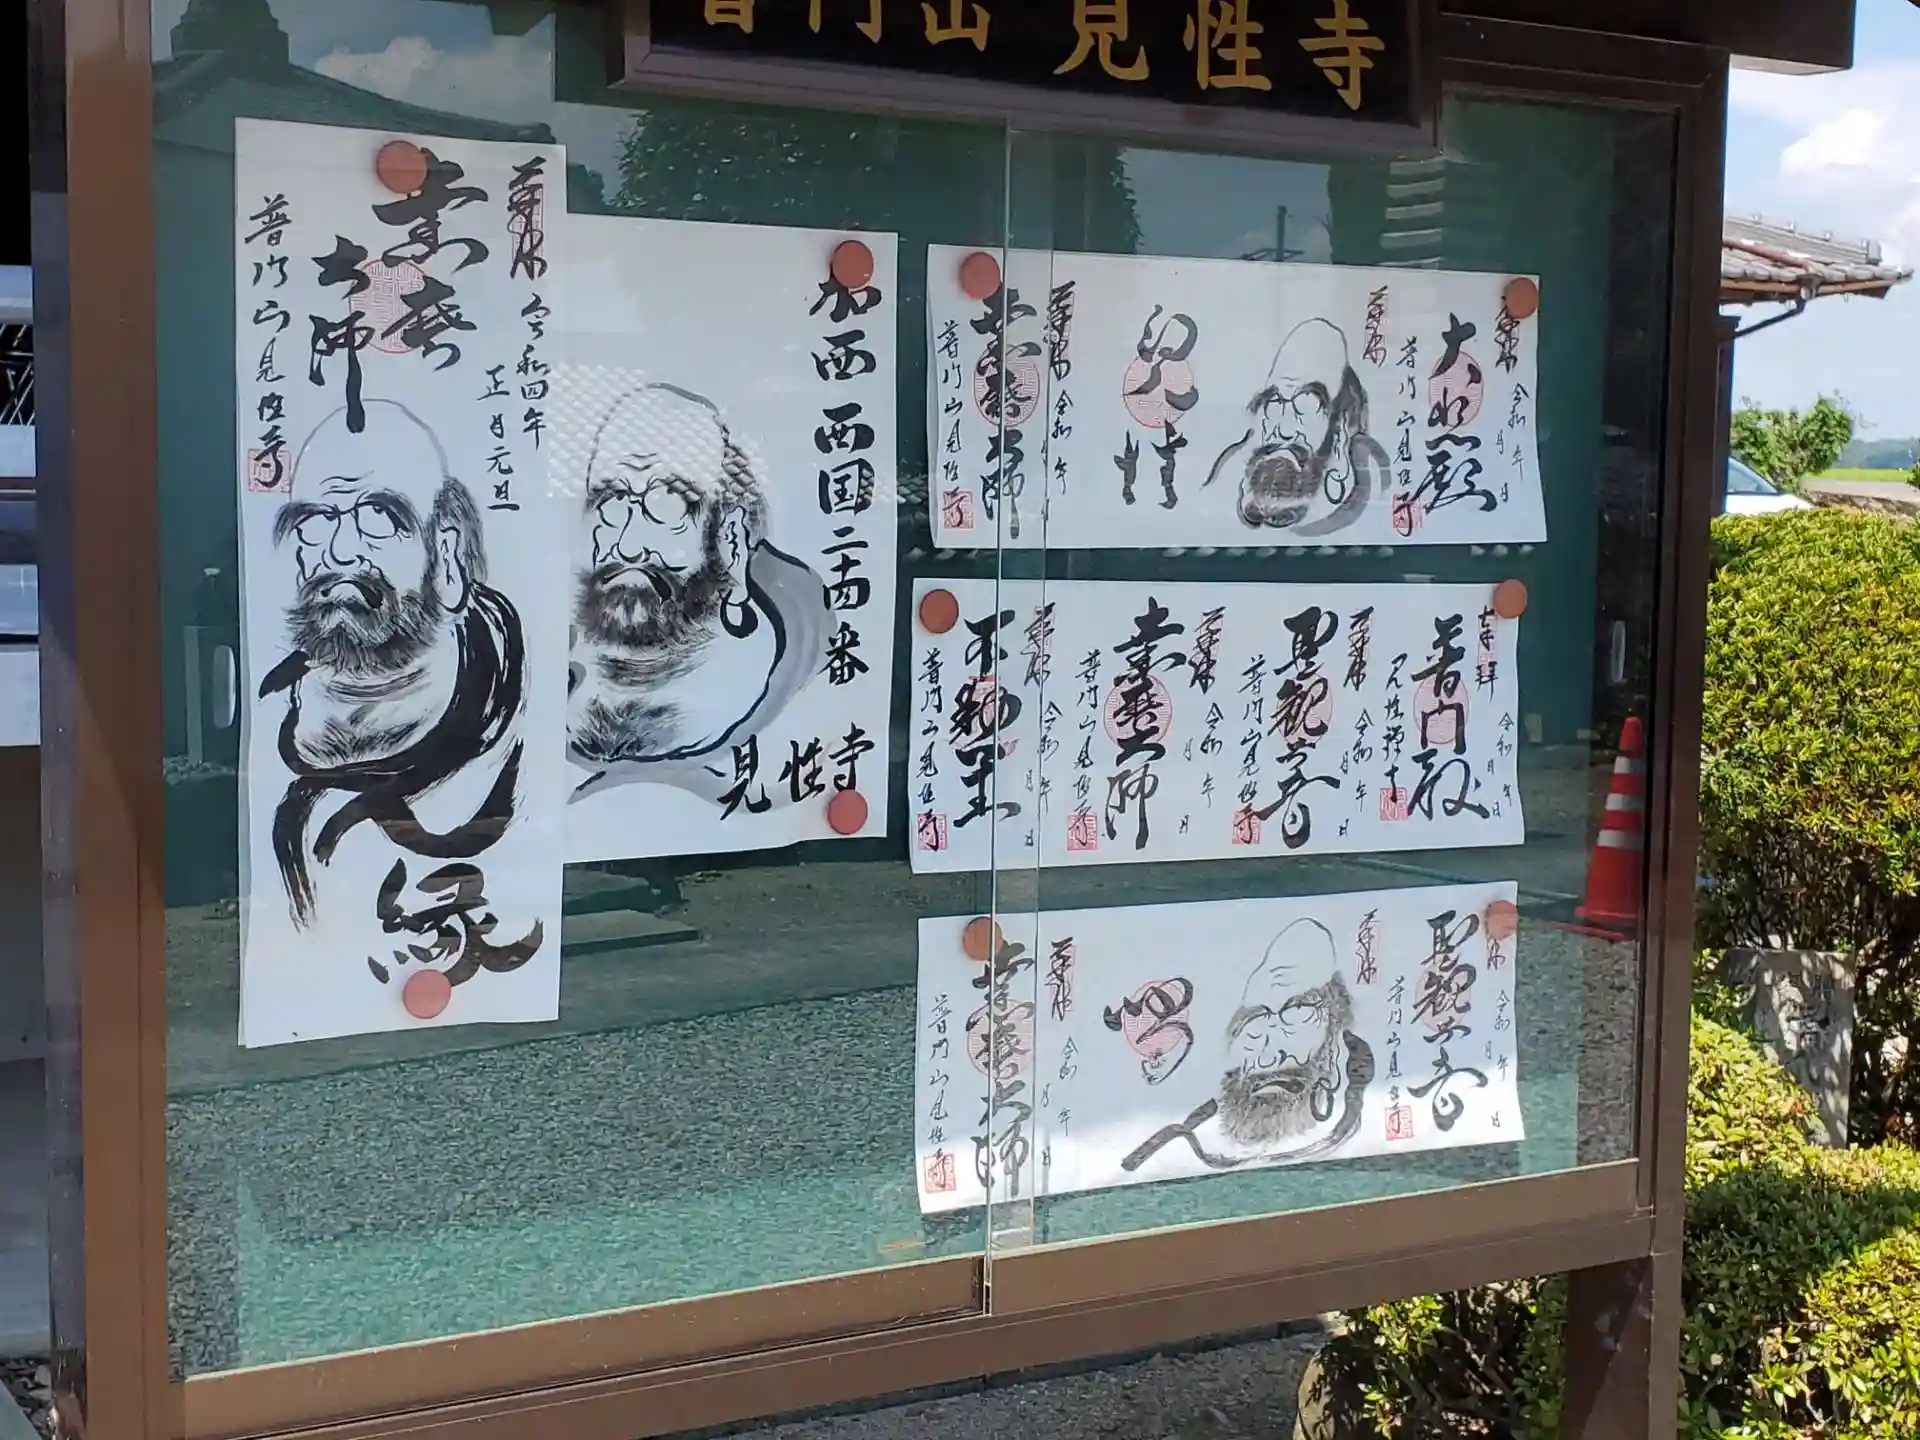 普門山 見性寺
奉拝
令和四年
正月元旦
達磨
大師
普門山見性寺
縁
加西西国二十四番
見性寺
奉拝
令和 年 月 日
大悲殿
普門山見性寺
奉拝
見性
奉拝
令和 年 月 日
達磨大師
普門山見性寺
奉拝
令和 年 月 日
普門殿
見性禅寺
奉拝
令和 年 月 日
聖観音
普門山見性寺
奉拝
令和 年 月 日
達磨大師
普門山見性寺
奉拝
令和 年 月 日
不動明王
普門山見性寺
奉拝
令和 年 月 日
聖観音
普門山見性寺
奉拝
奉拝
令和 年 月 日
達磨大師
普門山見性寺